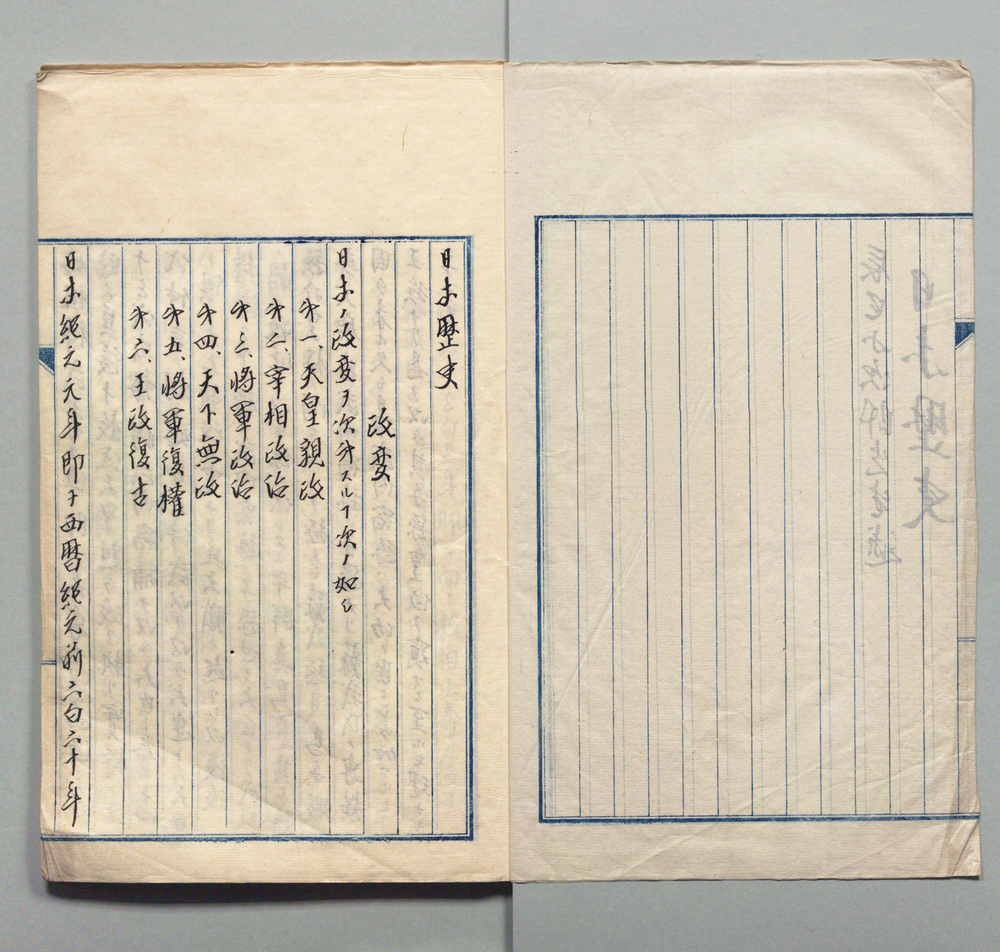 日本歴史
改変
日本ノ改変ヲ次第スルヿ次ノ如シ
第一、天皇親政
第二、宰相政治
第三、将軍政治
第四、天下無政
第五、将軍復権
第六、王政復古
日本紀元元年即チ西暦紀元前六百六十年